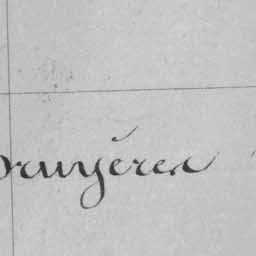 Bruyères